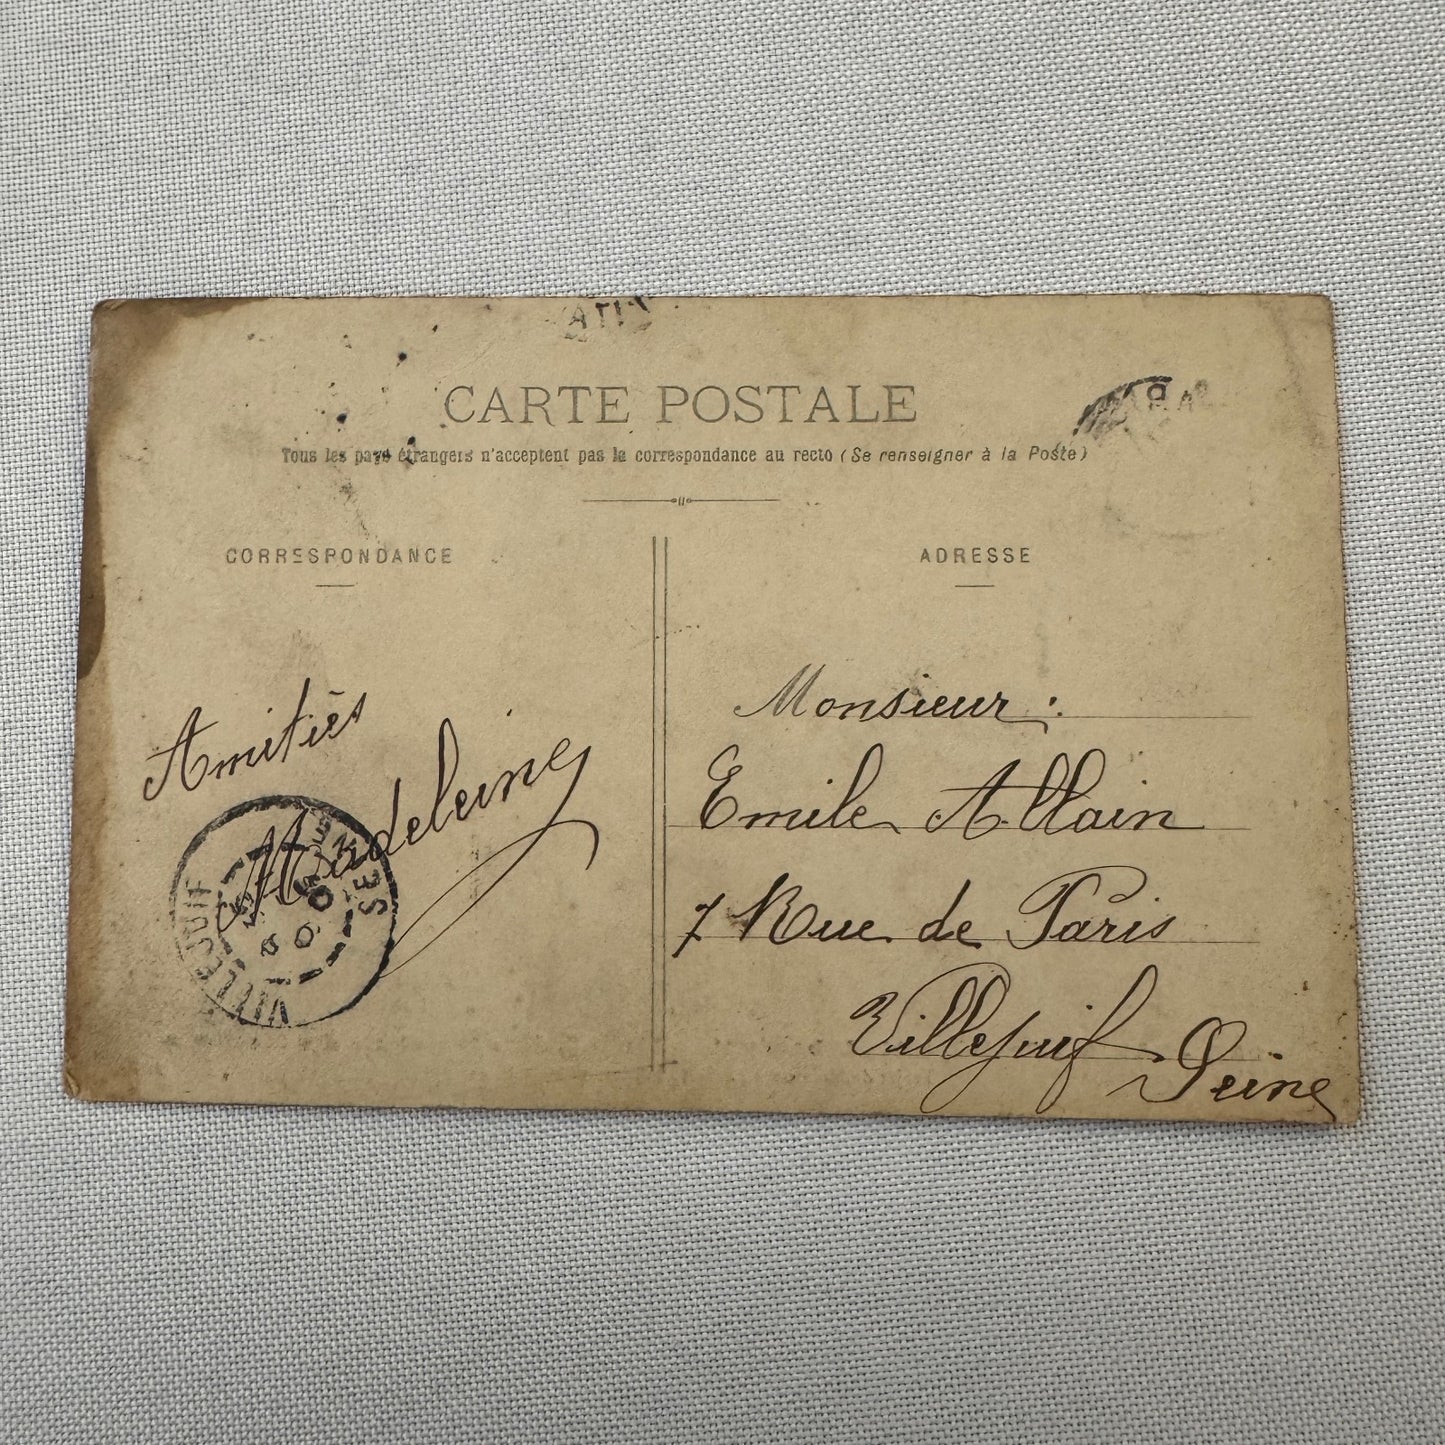 CARTE POSTALE
Tous les pays étrangers n'acceptent pas la correspondance au recto (Se renseigner à la Poste)
CORRESPONDANCE
Amitiés
Madeleine
VILLEJUIF
SEINE
ADRESSE
Monsieur :
Emile Allain
7 Rue de Paris
Villejuif
Seine